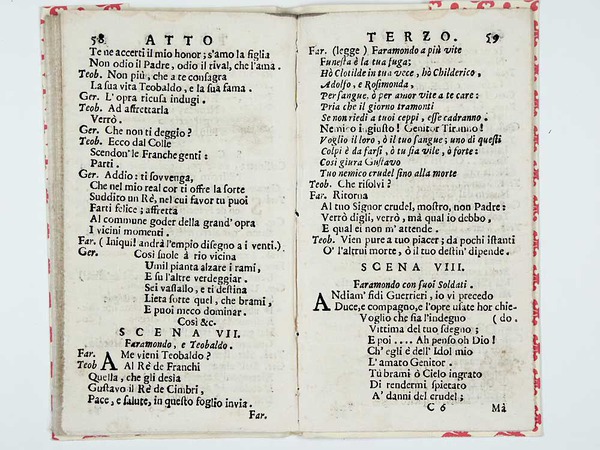 58 ATTO
Te ne accerti il mio honor; s'amo la figlia
Non odio il Padre, odio il rival, che l'ama.
Teob. Non più, che a te consagra
La sua vita Teobaldo, e la sua fama.
Ger. L'opra ricusa indugi.
Teob. Ad affrettarla
Verrò.
Ger. Che non ti deggio?
Teob. Ecco dal Colle
Scendon'le Franche genti:
Parti.
Ger. Addio: ti sovvenga,
Che nel mio real cor ti offre la sorte
Suddito un Rè, nel cui favor tu puoi
Farti felice; affretta
Al commune goder della grand'opra
I vicini momenti.
Far. (Iniqui! andrà l'empio disegno a i venti.)
Ger. Così suole à rio vicina
Umil pianta alzare i rami,
E fu l'altre verdeggiar.
Sei vassallo, e ti destina
Lieta sorte quel, che brami,
E puoi meco dominar.
Così &c.
SCENA VII.
Faramondo, e Teobaldo.
Far. A Me vieni Teobaldo?
Teob Al Rè de Franchi
Quella, che gli desia
Gustavo il Rè de Cimbri,
Pace, e salute, in questo foglio invia.
Far.
TERZO. 59
Far. (legge) Faramondo a più vite
Funesta è la tua fuga;
Hò Clotilde in tua vece, hò Childerico,
Adolfo, e Rosimonda,
Per sangue, ò per amor vite a te care:
Pria che il giorno tramonti
Se non riedi a tuoi ceppi, esse cadranno.
Nemico ingiusto! Genitor Tiranno!
Voglio il loro, ò il tuo sangue; uno di questi
Colpi è da farsi, ò tu sia vile, ò forte:
Così giura Gustavo
Tuo nemico crudel sino alla morte
Teob. Che risolvi?
Far. Ritorna
Al tuo Signor crudel, mostro, non Padre:
Verrò digli, verrò, mà qual io debbo,
E qual ei non m'attende.
Teob. Vien pure a tuo piacer; da pochi istanti
O' l'altrui morte, ò il tuo destin' dipende.
SCENA VIII.
Faramondo con suoi Soldati.
ANdiam' fidi Guerrieri, io vi precedo
Duce, e compagno, e l'opre usate hor chie-
Voglio che sia l'indegno (do.
Vittima del tuo sdegno;
E poi .... Ah penso oh Dio!
Ch'egli è dell'Idol mio
L'amato Genitor.
Tù brami ò Cielo ingrato
Di rendermi spietato
A' danni del crudel;
C 6 Mà